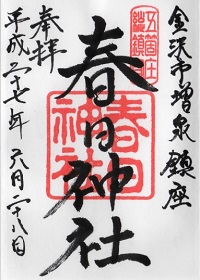 金沢市増泉鎮座
五箇庄
総鎮
春日神社
春日
神社
奉拝
平成二十七年六月二十八日